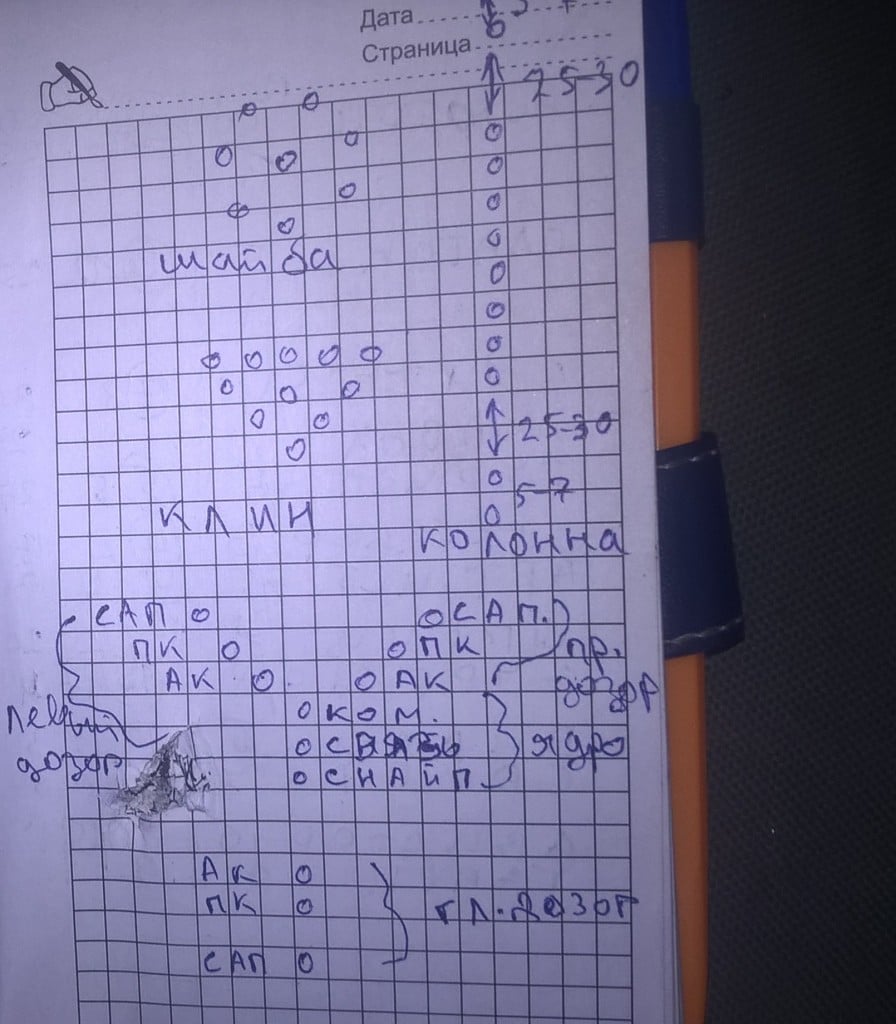 Дата
Страница
25-30
шайба
25-30
5-7
КЛИН
КОЛОННА
САП САП.
ПК ПК пр.
АК АК дозор
левый КОМ.
СВЯЗЬ ядро
дозор СНАЙП
АК
ПК гл. дозор
САП